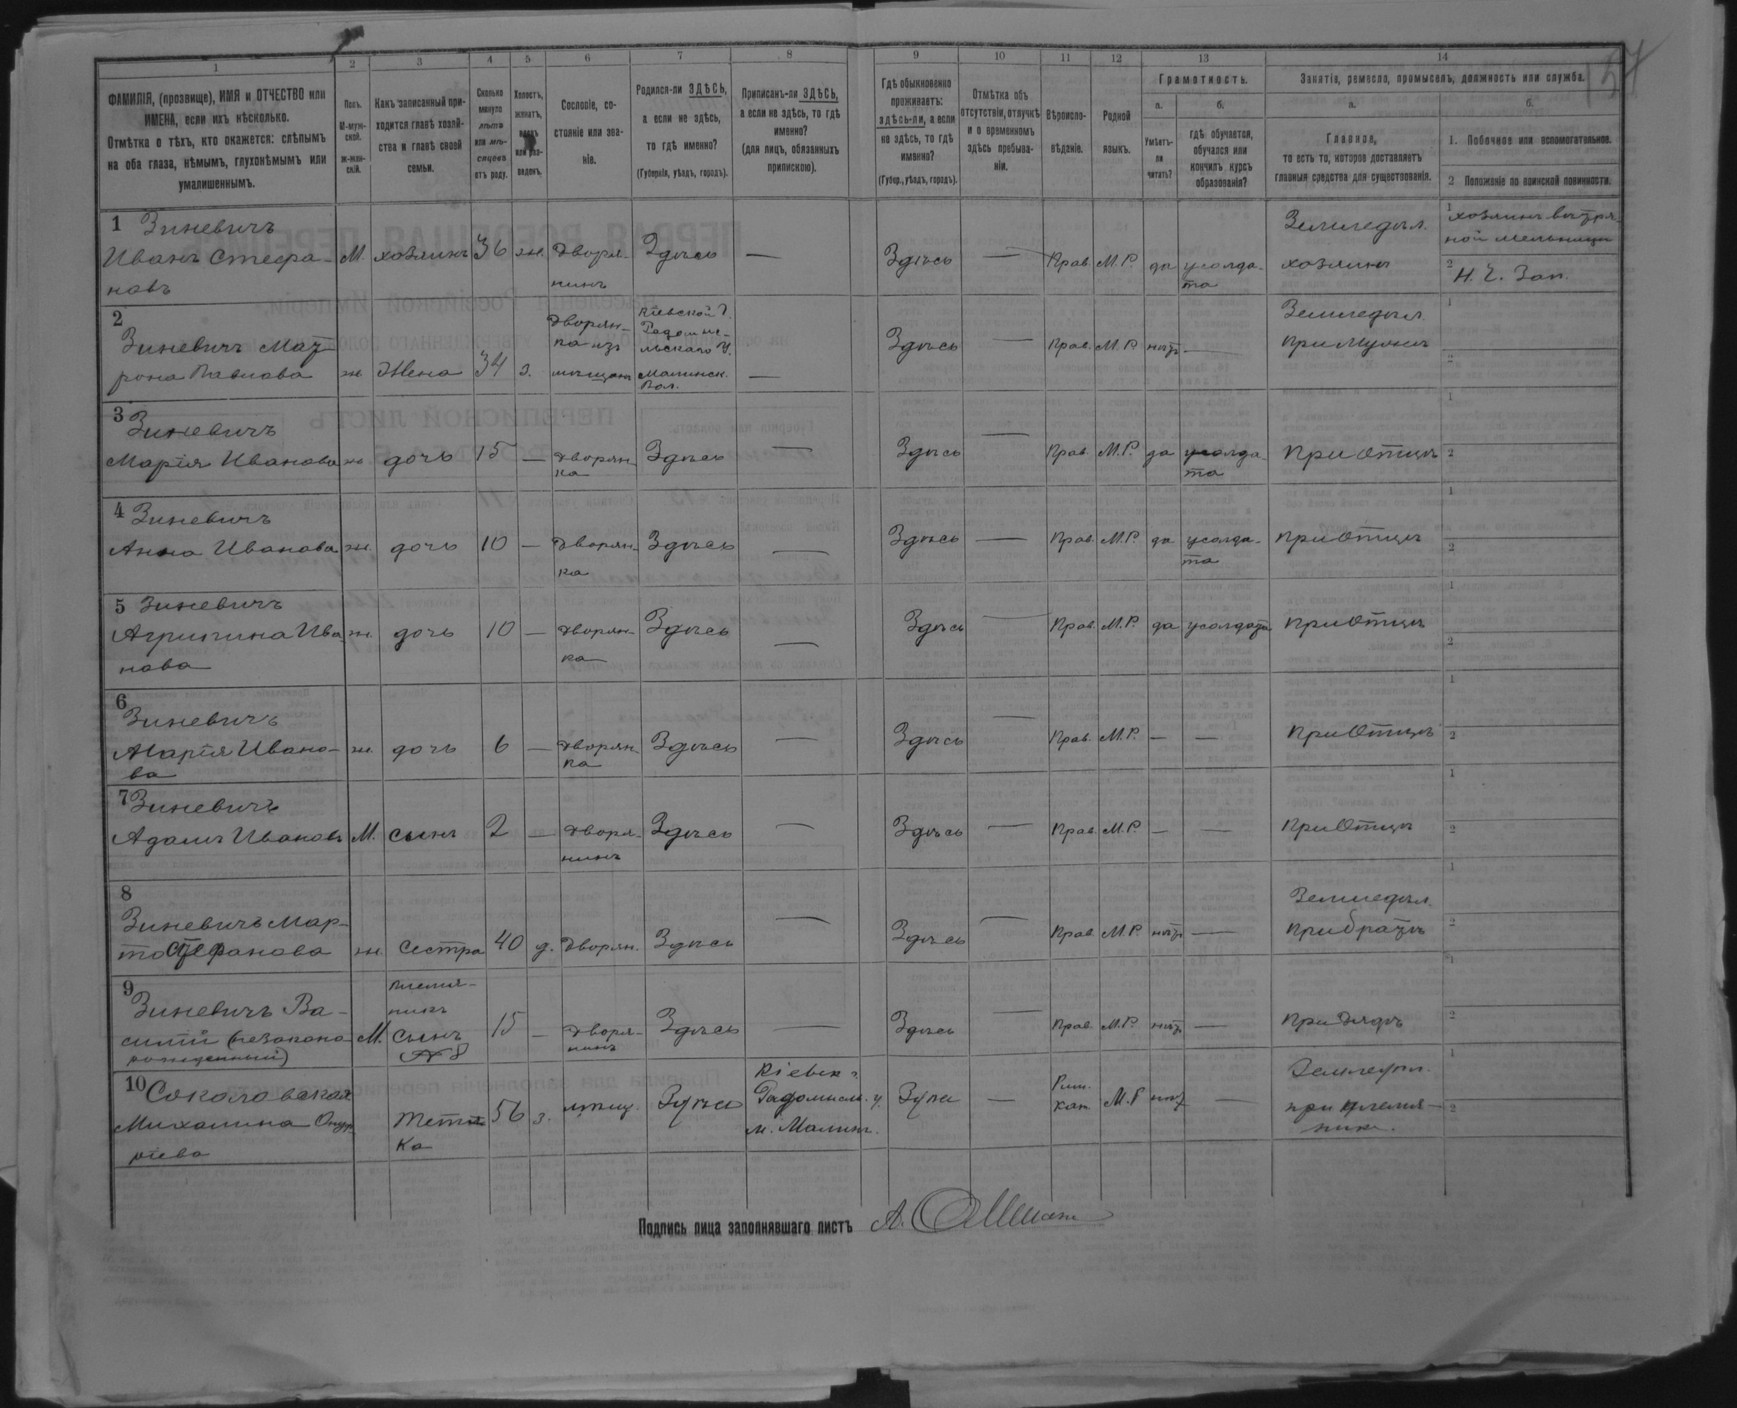 1 2 3 4 5 6 7 8 9 10 11 12 13 14
ФАМИЛІЯ, (прозвище), ИМЯ и ОТЧЕСТВО или ИМЕНА, если ихъ нѣсколько.
Отмѣтка о тѣхъ, кто окажется: слѣпымъ на оба глаза, нѣмымъ, глухонѣмымъ или умалишеннымъ.
Полъ. М-мужской. Ж-женскій.
Какъ записанный приходится главѣ хозяйства и главѣ своей семьи.
Сколько минуло лѣтъ или мѣсяцевъ отъ роду.
Холостъ, женатъ, вдовъ или разведенъ.
Сословіе, состояніе или званіе.
Родился-ли ЗДѢСЬ, а если не здѣсь, то гдѣ именно?
(Губернія, уѣздъ, городъ).
Приписанъ-ли ЗДѢСЬ, а если не здѣсь, то гдѣ именно?
(для лицъ, обязанныхъ припискою).
Гдѣ обыкновенно проживаетъ: здѣсь-ли, а если не здѣсь, то гдѣ именно?
(Губер., уѣздъ, городъ).
Отмѣтка объ отсутствіи, отлучкѣ и о временномъ здѣсь пребываніи.
Вѣроисповѣданіе.
Родной языкъ.
Грамотность.
а. Умѣетъ-ли читать?
б. гдѣ обучается, обучался или кончилъ курсъ образованія?
Занятіе, ремесло, промыселъ, должность или служба.
а. Главное, то есть то, которое доставляетъ главныя средства для существованія.
б. 1. Побочное или вспомогательное.
2 Положеніе по воинской повинности.
1 Зиневичъ Иванъ Стефановъ М. хозяинъ 36 ж. Дворянинъ Здѣсь — Здѣсь — Прав. М.Р. да у солдата Земледѣл. хозяинъ 1 хозяинъ вѣтряной мельницы 2 Н. Ч. Зап.
2 Зиневичъ Матрона Павлова ж Жена 34 з. Дворянка изъ мѣщанъ Кіевской Г. Радомысльскаго У. Малинск. Вол. — Здѣсь — Прав. М.Р. нѣтъ — Земледѣл. При Мужѣ
3 Зиневичъ Марія Иванова ж. дочь 15 — Дворянка Здѣсь — Здѣсь — Прав. М.Р. да у солдата При Отцѣ
4 Зиневичъ Анна Иванова ж. дочь 10 — Дворянка Здѣсь — Здѣсь — Прав. М.Р. да у солдата При Отцѣ
5 Зиневичъ Агрипина Иванова ж. дочь 10 — Дворянка Здѣсь — Здѣсь — Прав. М.Р. да у солдата При Отцѣ
6 Зиневичъ Марія Иванова ж. дочь 6 — Дворянка Здѣсь — Здѣсь — Прав. М.Р. — — При Отцѣ
7 Зиневичъ Адамъ Ивановъ М. сынъ 2 — Дворянинъ Здѣсь — Здѣсь — Прав. М.Р. — — При Отцѣ
8 Зиневичъ Марта Стефанова ж. Сестра 40 д. Дворян. Здѣсь — Здѣсь — Прав. М.Р. нѣтъ — Земледѣл. При братѣ
9 Зиневичъ Василій (незаконорожденный) М. племянникъ Сынъ №8 15 — Дворянинъ Здѣсь — Здѣсь — Прав. М.Р. нѣтъ — При Дядѣ
10 Соколовская Михалина тетка 56 з. мѣщ. Здѣсь Кіевск. г. Радомысл. у. м. Малинъ. — Рим. Кат. нѣтъ — Земледѣл. при племянникѣ.
Подпись лица заполнявшаго листъ